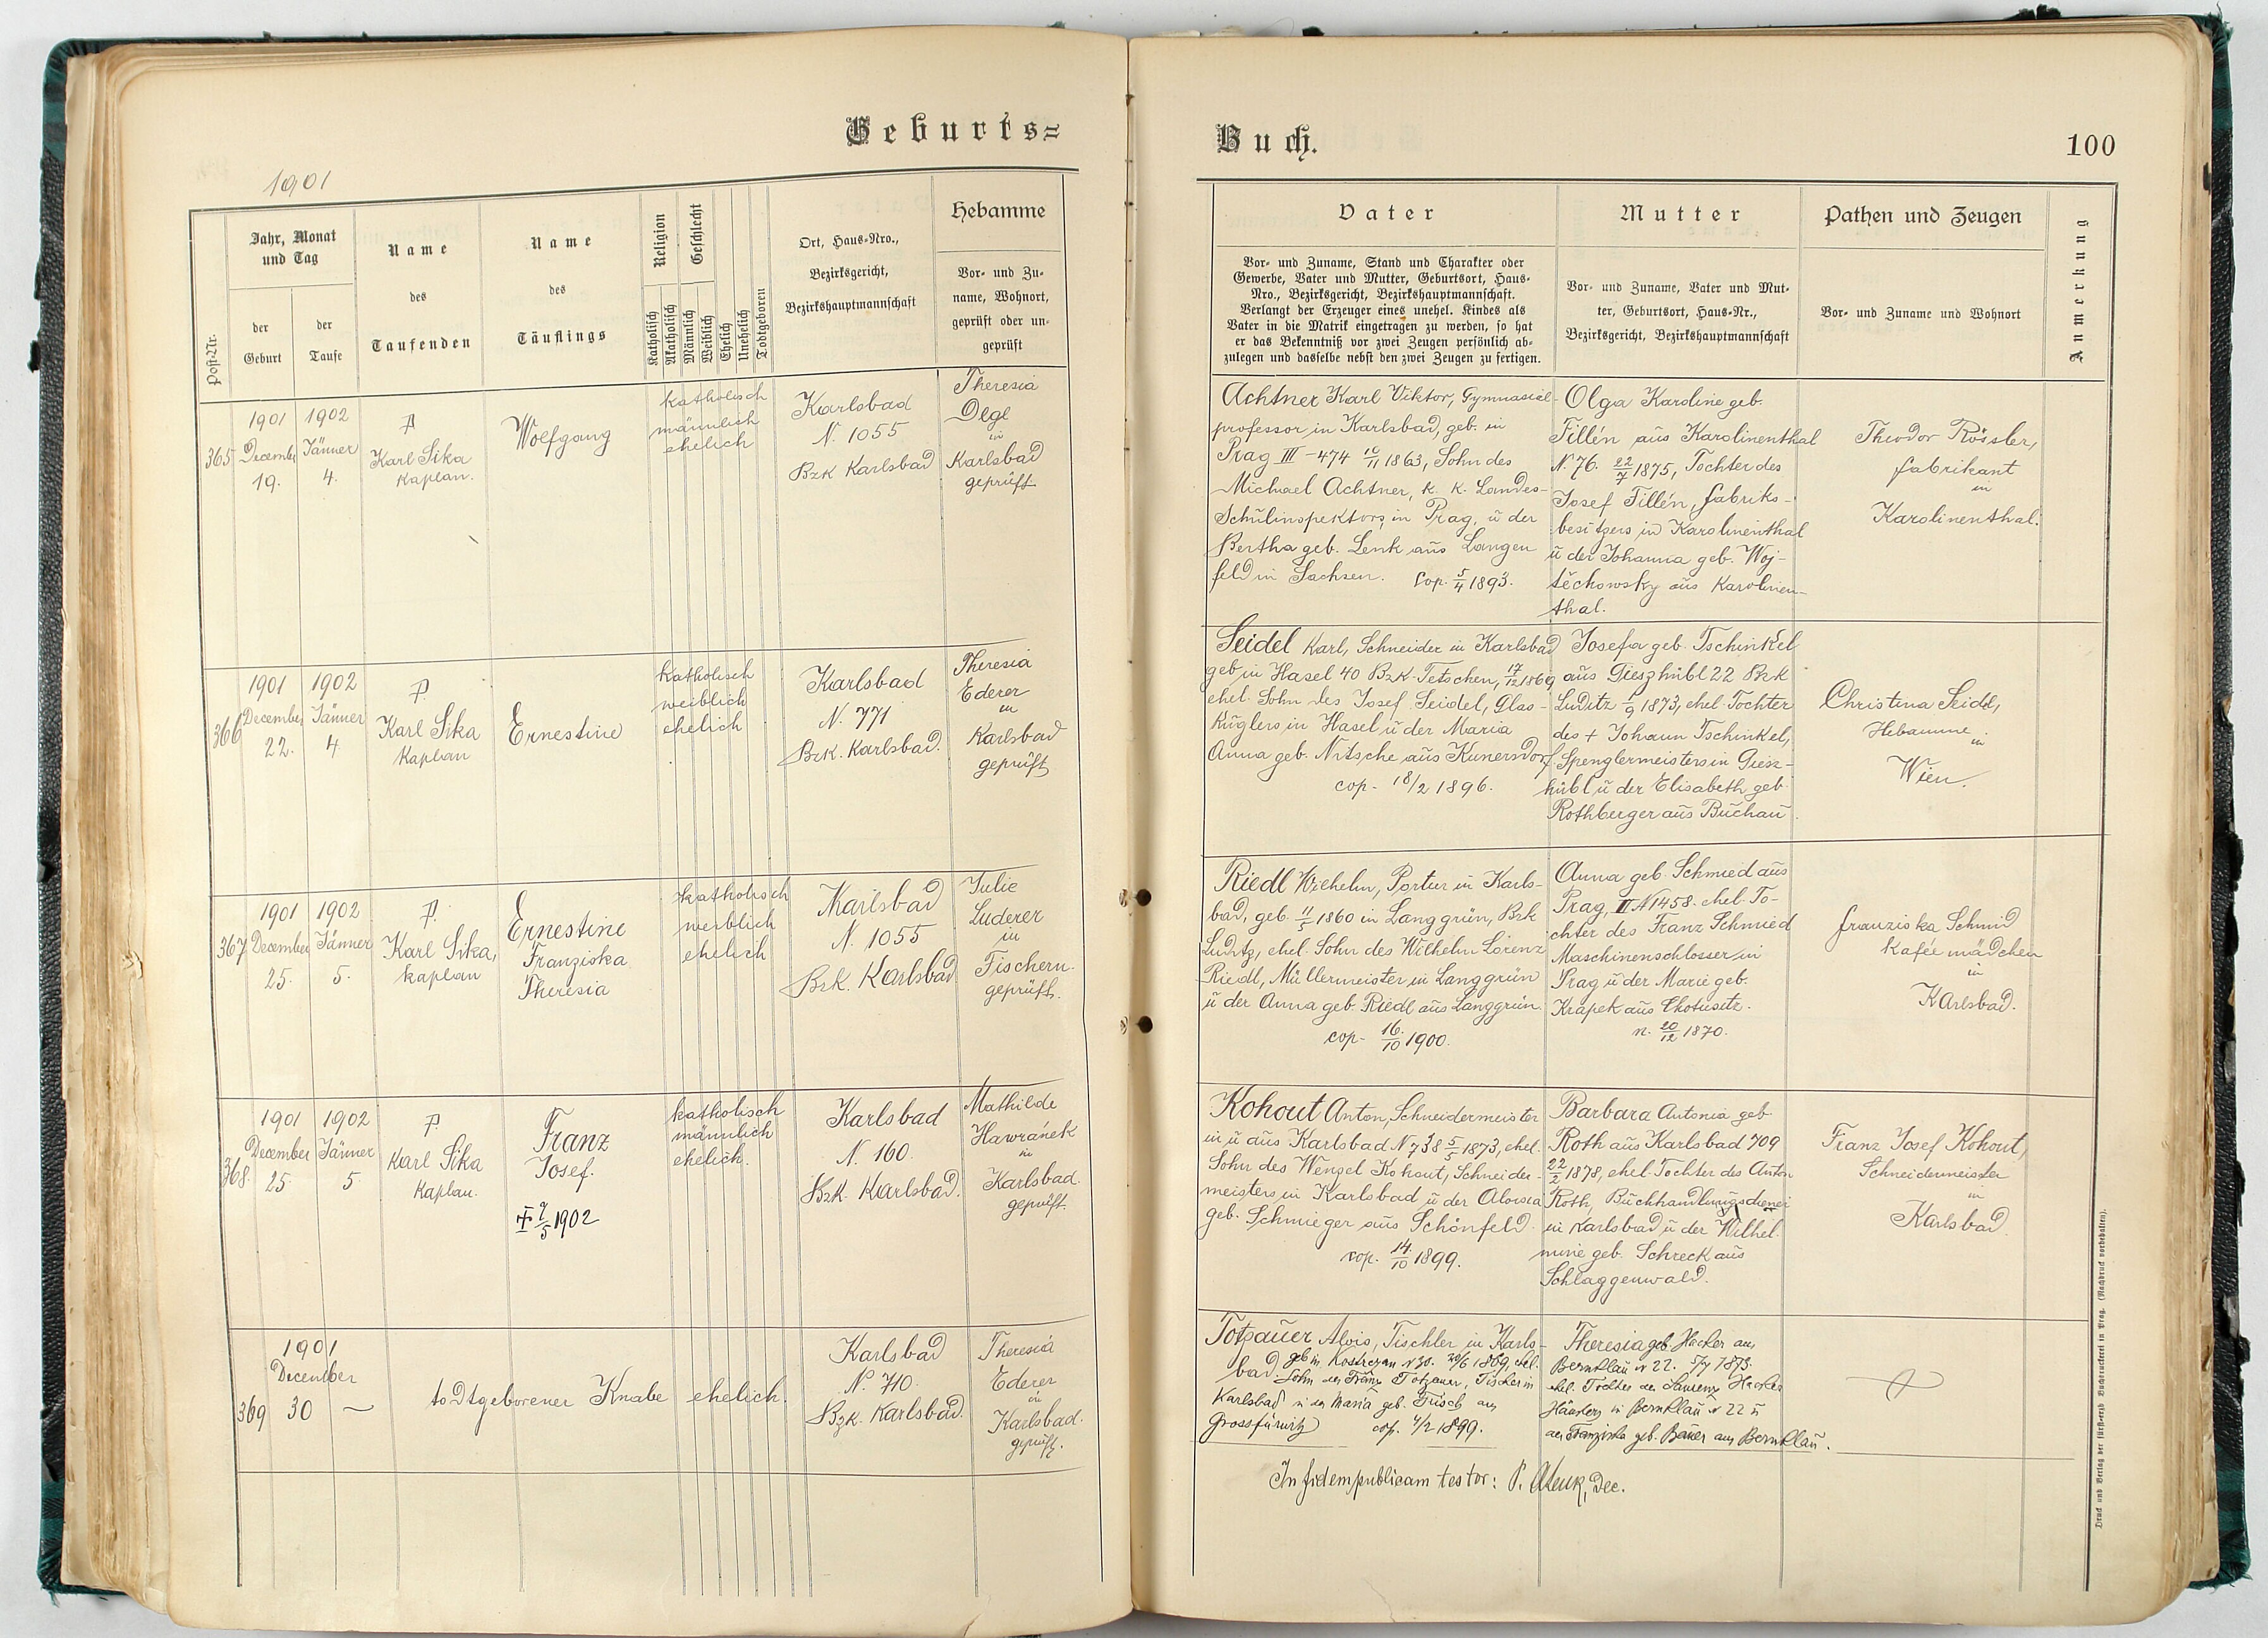 Geburts=
1901
Post-Nr.
Jahr, Monat
und Tag
der
Geburt
der
Taufe
Name
des
Taufenden
Name
des
Täuflings
Religion
Katholisch
Akatholisch
Geschlecht
Männlich
Weiblich
Ehelich
Unehelich
Todtgeboren
Ort, Haus-Nro.,
Bezirksgericht,
Bezirkshauptmannschaft
Hebamme
Vor- und Zu-
name, Wohnort,
geprüft oder un-
geprüft
365
1901
December
19.
1902
Jänner
4.
P.
Karl Sika
Kaplan.
Wolfgang
katholisch
männlich
ehelich
Karlsbad
N. 1055
Bzk Karlsbad
Theresia
Degl
in
Karlsbad
geprüft
366
1901
December
22.
1902
Jänner
4
P.
Karl Sika
Kaplan
Ernestine
katholisch
weiblich
ehelich
Karlsbad
N. 771
Bzk. Karlsbad.
Theresia
Ederer
in
Karlsbad
geprüft
367
1901
December
25.
1902
Jänner
5.
P.
Karl Sika,
Kaplan
Ernestine
Franziska
Theresia
katholisch
weiblich
ehelich
Karlsbad
N. 1055
Bzk. Karlsbad
Julie
Luderer
in
Fischern.
geprüft.
368.
1901
December
25
1902
Jänner
5
P.
Karl Sika
Kaplan.
Franz
Josef.
1902
katholisch
männlich
ehelich.
Karlsbad
N. 160.
Bzk. Karlsbad.
Mathilde
Hawránek
in
Karlsbad.
geprüft.
369
1901
December
30
—
todtgeborener Knabe ehelich.
Karlsbad
N. 710.
Bzk. Karlsbad.
Theresia
Ederer
in
Karlsbad.
geprüft.
Buch.
100
Vater
Vor- und Zuname, Stand und Charakter oder
Gewerbe, Vater und Mutter, Geburtsort, Haus-
Nro., Bezirksgericht, Bezirkshauptmannschaft.
Verlangt der Erzeuger eines unehel. Kindes als
Vater in die Matrik eingetragen zu werden, so hat
er das Bekenntniß vor zwei Zeugen persönlich ab-
zulegen und dasselbe nebst den zwei Zeugen zu fertigen.
Mutter
Vor- und Zuname, Vater und Mut-
ter, Geburtsort, Haus-Nr.,
Bezirksgericht, Bezirkshauptmannschaft
Pathen und Zeugen
Vor- und Zuname und Wohnort
Anmerkung
Achtner Karl Viktor, Gymnasial-
professor in Karlsbad, geb. in
Prag III-474 10/11 1863, Sohn des
Michael Achtner, k. k. Landes-
Schulinspektors in Prag, ū der
Bertha geb. Lenk aus Langen
feld in Sachsen. Cop. 5/4 1893.
Olga Karoline geb.
Fillén aus Karolinenthal
N. 76. 22/7 1875, Tochter des
Josef Fillén, Fabriks-
besitzers in Karolinenthal
ū der Johanna geb. Woj-
těchowsky aus Karolinen-
thal.
Theodor Rössler,
Fabrikant
in
Karolinenthal.
Seidel Karl, Schneider in Karlsbad
geb. in Hasel 40 Bzk Tetschen, 17/12 1869
ehel. Sohn des Josef Seidel, Glas-
kuglers in Hasel ū der Maria
Anna geb. Nitsche aus Kunersdorf
cop- 18/2 1896.
Josefa geb. Tschinkel
aus Gieszhübl 22 Bzk
Luditz 1/9 1873, ehel. Tochter
des + Johann Tschinkel,
Spenglermeisters in Giesz-
hübl ū der Elisabeth geb
Rothberger aus Buchau.
Christina Seidl,
Hebamme
in
Wien.
Riedl Wilhelm, Portier in Karls-
bad, geb. 11/5 1860 in Langgrün, Bzk
Luditz, ehel. Sohn des Wilhelm Lorenz
Riedl, Müllermeister in Langgrün
ū der Anna geb. Riedl aus Langgrün.
cop- 16/10 1900.
Anna geb. Schmied aus
Prag, II N 1458. ehel. To-
chter des Franz Schmied
Maschinenschlosser in
Prag ū der Marie geb.
Krapek aus Chotusitz.
n. 20/12 1870.
Franziska Schmid
Kaféemädchen
in
Karlsbad.
Kohout Anton, Schneidermeister
in ū aus Karlsbad N 738 5/5 1873, ehel.
Sohn des Wenzel Kohout, Schneider-
meisters in Karlsbad ū der Aloisia
geb. Schmieger aus Schönfeld.
cop. 14/10 1899.
Barbara Antonia geb
Roth aus Karlsbad 709
22/2 1878, ehel. Tochter des Anton
Roth, Buchhandlungsdiener
in Karlsbad ū der Wilhel-
mine geb. Schreck aus
Schlaggenwald.
Franz Josef Kohout,
Schneidermeister
in
Karlsbad.
Totzauer Alois, Tischler in Karls-
bad geb in N 30. 1869, ehel.
Sohn des Franz Totzauer, Tischler in
Karlsbad ū der Maria geb. Frisch aus
cop. 4/2 1899.
Theresia geb. Hacker aus
Bernklau N 22. 5/7 1873.
ehel. Tochter des Laurenz Hacker
Häuslers in Bernklau N 22 ū
der Franziska geb. Bauer aus Bernklau.
In fidem publicam testor: P. Dec.
Druck und Verlag der fürst-erzb. Buchdruckerei in Prag. (Nachdruck vorbehalten).